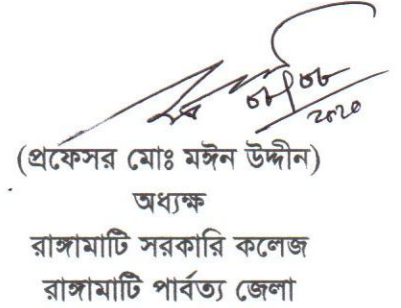 ০৮/০৮
২০২০
(প্রফেসর মোঃ মঈন উদ্দীন)
অধ্যক্ষ
রাঙ্গামাটি সরকারি কলেজ
রাঙ্গামাটি পার্বত্য জেলা